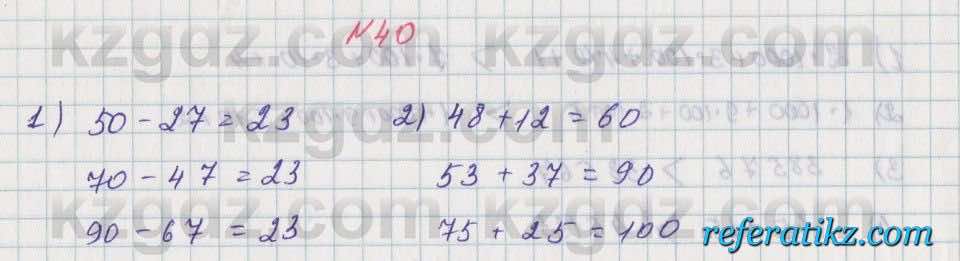 №40
1) 50 - 27 = 23 2) 48 + 12 = 60
70 - 47 = 23 53 + 37 = 90
90 - 67 = 23 75 + 25 = 100
kzgdz.com
referatikz.com